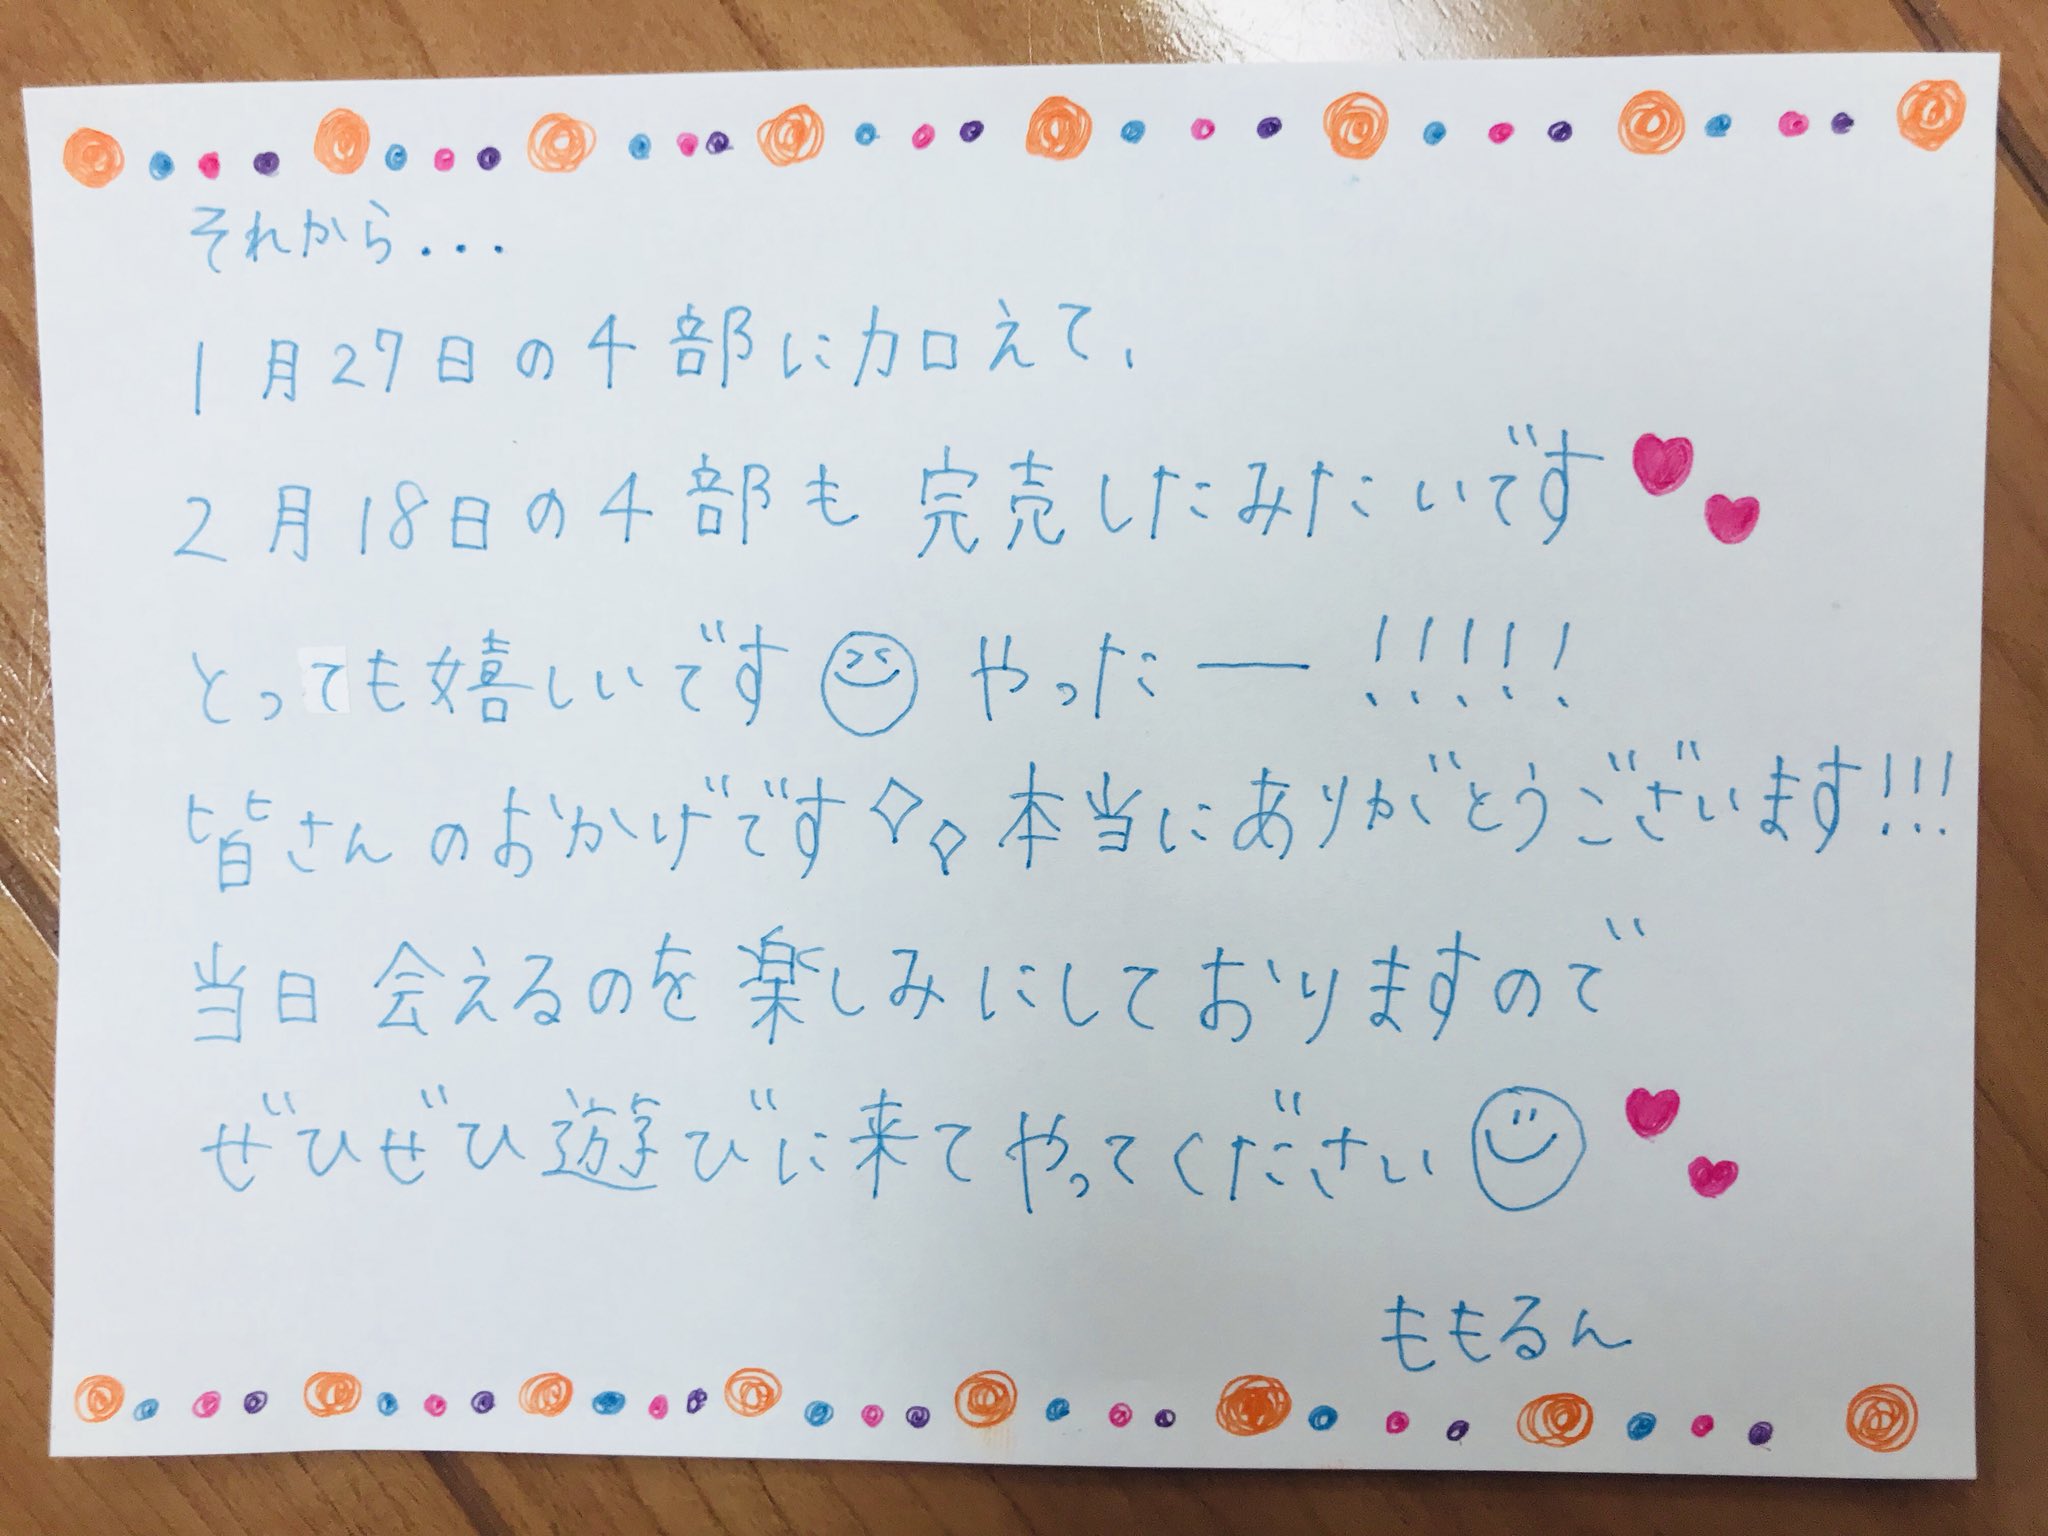 それから...
1月27日の4部に加えて、
2月18日の4部も完売したみたいです
とっても嬉しいです やったー!!!!!
皆さんのおかげです 本当にありがとうございます!!!
当日会えるのを楽しみにしておりますので
ぜひぜひ遊びに来てやってください
ももるん